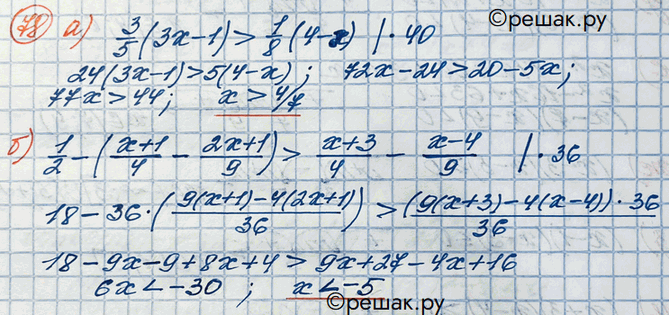 ©решак.ру
78 а) 3/5 (3x-1) > 1/8 (4-x) | · 40
24(3x-1)>5(4-x); 72x-24>20-5x;
77x>44; x>4/7
б) 1/2 - ((x+1)/4 - (2x+1)/9) > (x+3)/4 - (x-4)/9 | · 36
18-36·((9(x+1)-4(2x+1))/36) > ((9(x+3)-4(x-4))·36)/36
18-9x-9+8x+4 > 9x+27-4x+16
6x<-30; x<-5
©решак.ру